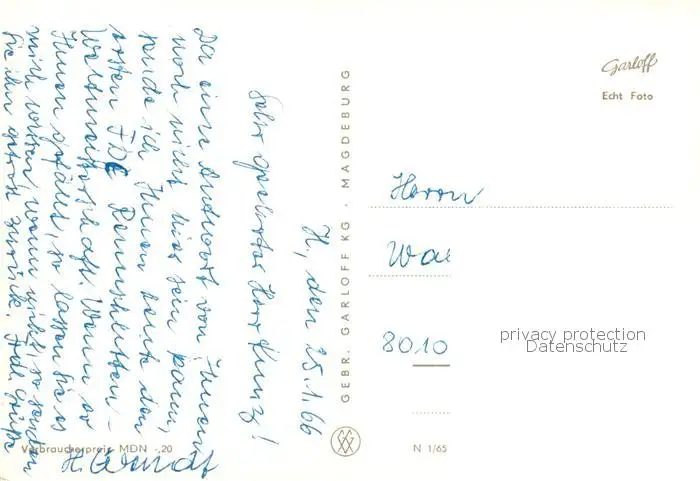 H., den 25.1.66
Sehr geehrter Herr Kunz!
Da eine Antwort von Ihnen
noch nicht hier sein kann,
sende ich Ihnen heute den
ersten FDC Rennschlitten-
Weltmeisterschaft. Wenn er
Ihnen gefällt, so lassen Sie es
mich wissen, wenn nicht, so senden
Sie ihn getrost zurück.
H. Wendt
Verbraucherpreis MDN -,20
GEBR. GARLOFF KG · MAGDEBURG
Garloff
Echt Foto
Herrn
8010
privacy protection
Datenschutz
N 1/65